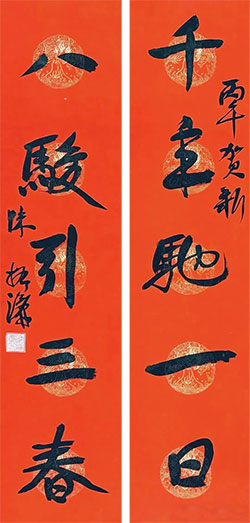 千里馳一日
丙午贺新
八駿引三春
陈振濂